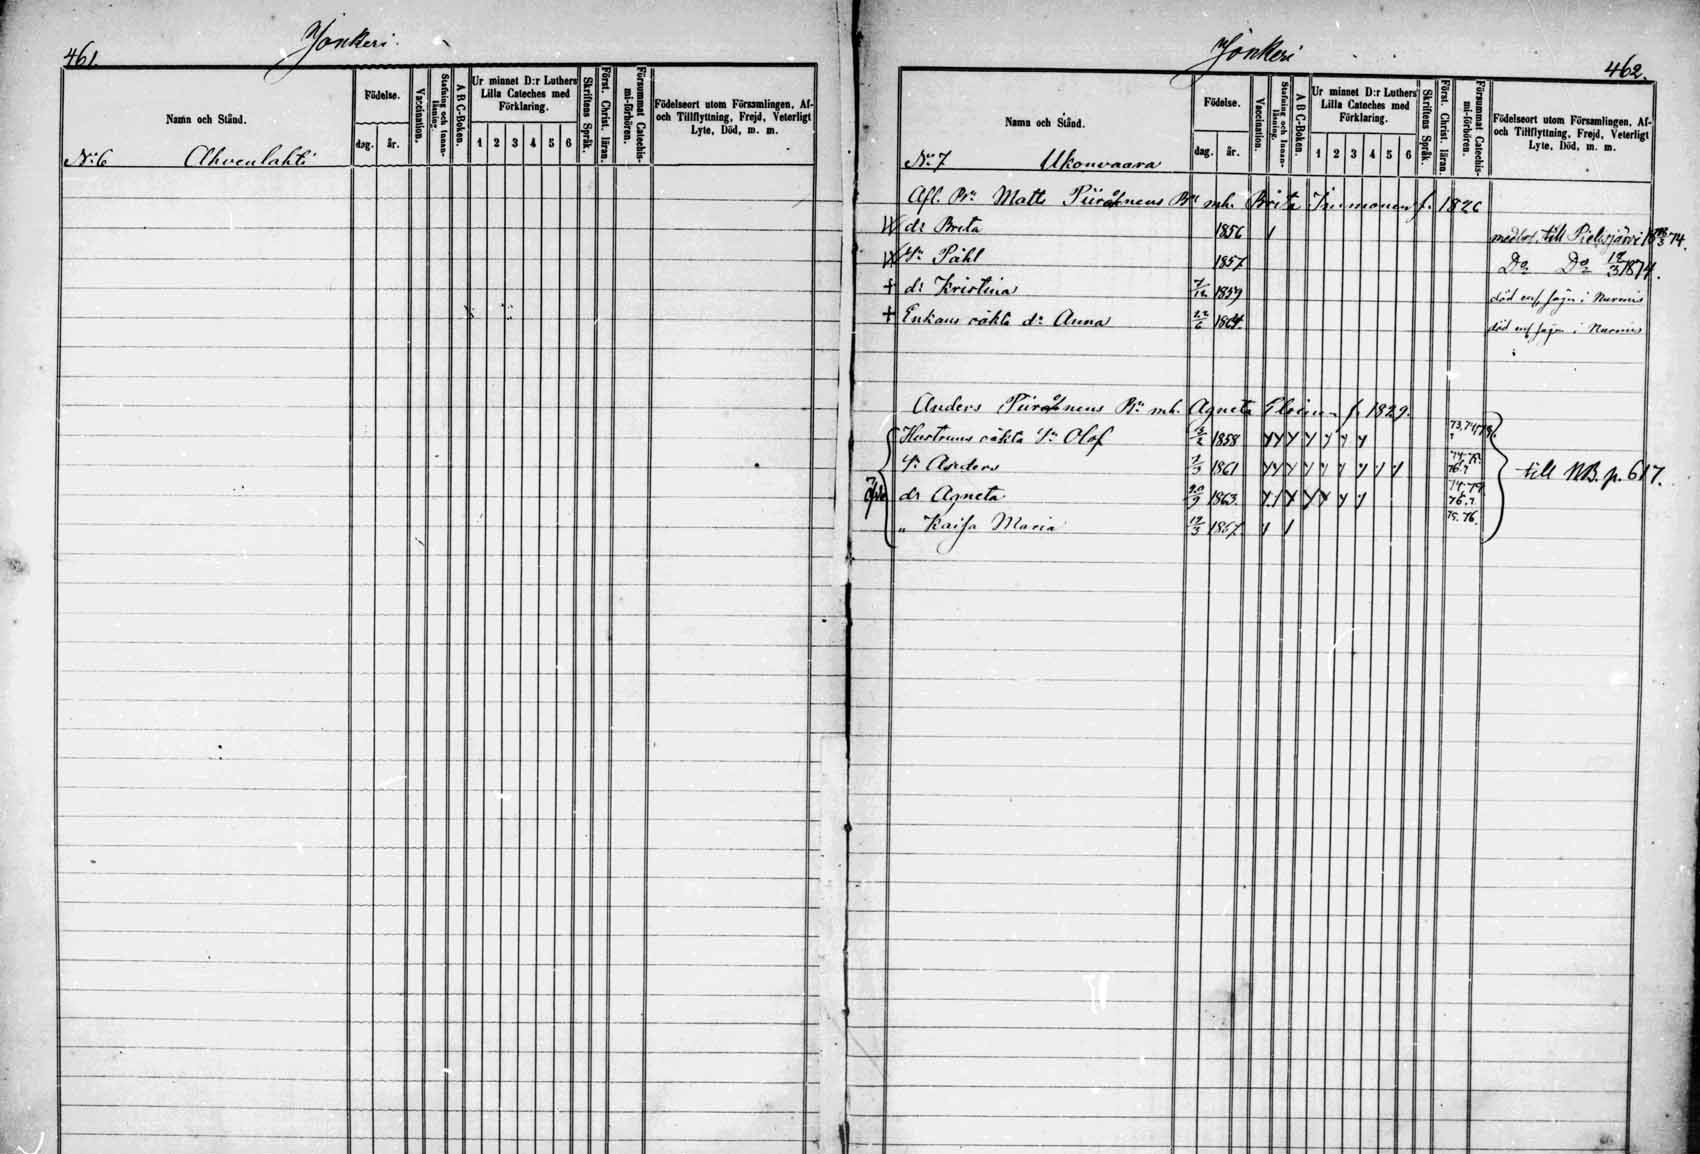 461.
Jonkeri.
Namn och Stånd.
Födelse.
dag.
år.
Vaccination.
Stafning och Innan-
läsning.
A B C-Boken.
Ur minnet D:r Luthers
Lilla Cateches med
Förklaring.
1 2 3 4 5 6
Skriftens Språk.
Först. Christ. läran.
Försummat Catechis-
mi-förhören.
Födelseort utom Församlingen, Af-
och Tillflyttning, Frejd, Veterligt
Lyte, Död, m. m.
N:o 6 Ahvenlahti
Jonkeri
462.
Namn och Stånd.
Födelse.
dag.
år.
Vaccination.
Stafning och Innan-
läsning.
A B C-Boken.
Ur minnet D:r Luthers
Lilla Cateches med
Förklaring.
1 2 3 4 5 6
Skriftens Språk.
Först. Christ. läran.
Försummat Catechis-
mi-förhören.
Födelseort utom Församlingen, Af-
och Tillflyttning, Frejd, Veterligt
Lyte, Död, m. m.
N:o 7 Ukonvaara
Afl. Matts mh. Brita f. 1826
dr Brita 1856 till Pielisjärvi 74.
Sn Påhl 1857 Do Do 12/3 1874.
+ dr Kristina 7/12 1859 död i Nurmis
+ Enkans oäkta dr Anna 22/6 1864. död i Nurmis
Anders mh. Agneta f. 1829.
Hustruns oäkta Sn Olof 1858
Sn Anders 1861 till NB. p. 617.
dr Agneta 20/9 1863.
" Kaisa Maria 1867. 75. 76.